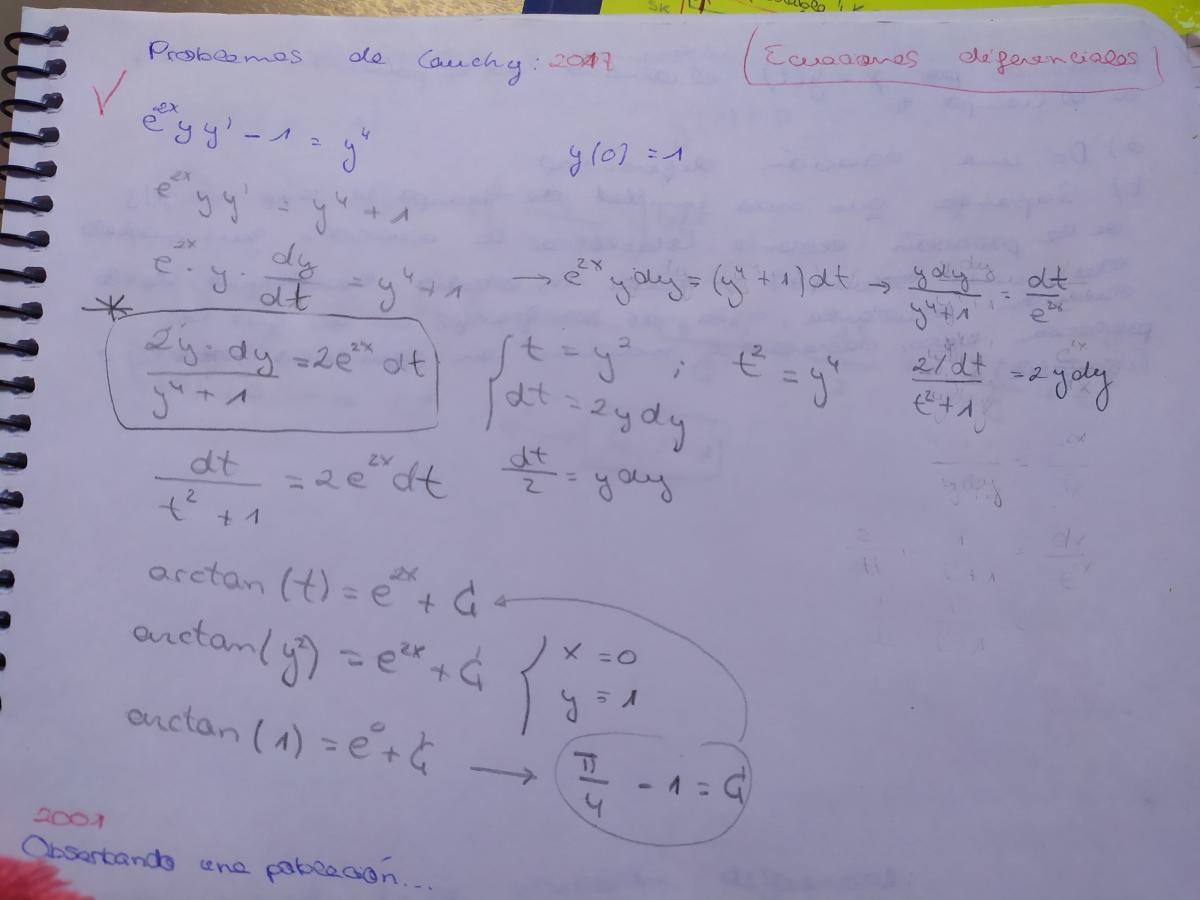 Problemas de Cauchy: 2017 (Ecuaciones diferenciales)
e^{2x} y y' - 1 = y^4 y(0) = 1
e^{2x} y y' = y^4 + 1
e^{2x} · y · dy/dt = y^4 + 1 → e^{2x} y dy = (y^4 + 1) dt → y dy/(y^4 + 1) = dt/e^{2x}
* 2y · dy/(y^4 + 1) = 2e^{2x} dt { t = y^2 ; t^2 = y^4
dt = 2y dy dt/(t^2 + 1) = 2y dy
dt/(t^2 + 1) = 2e^{2x} dt dt/2 = y dy
arctan(t) = e^{2x} + C_1
arctan(y^2) = e^{2x} + C_1 { x = 0
y = 1
arctan(1) = e^0 + C_1 → π/4 - 1 = C_1
2001
Observando una población...